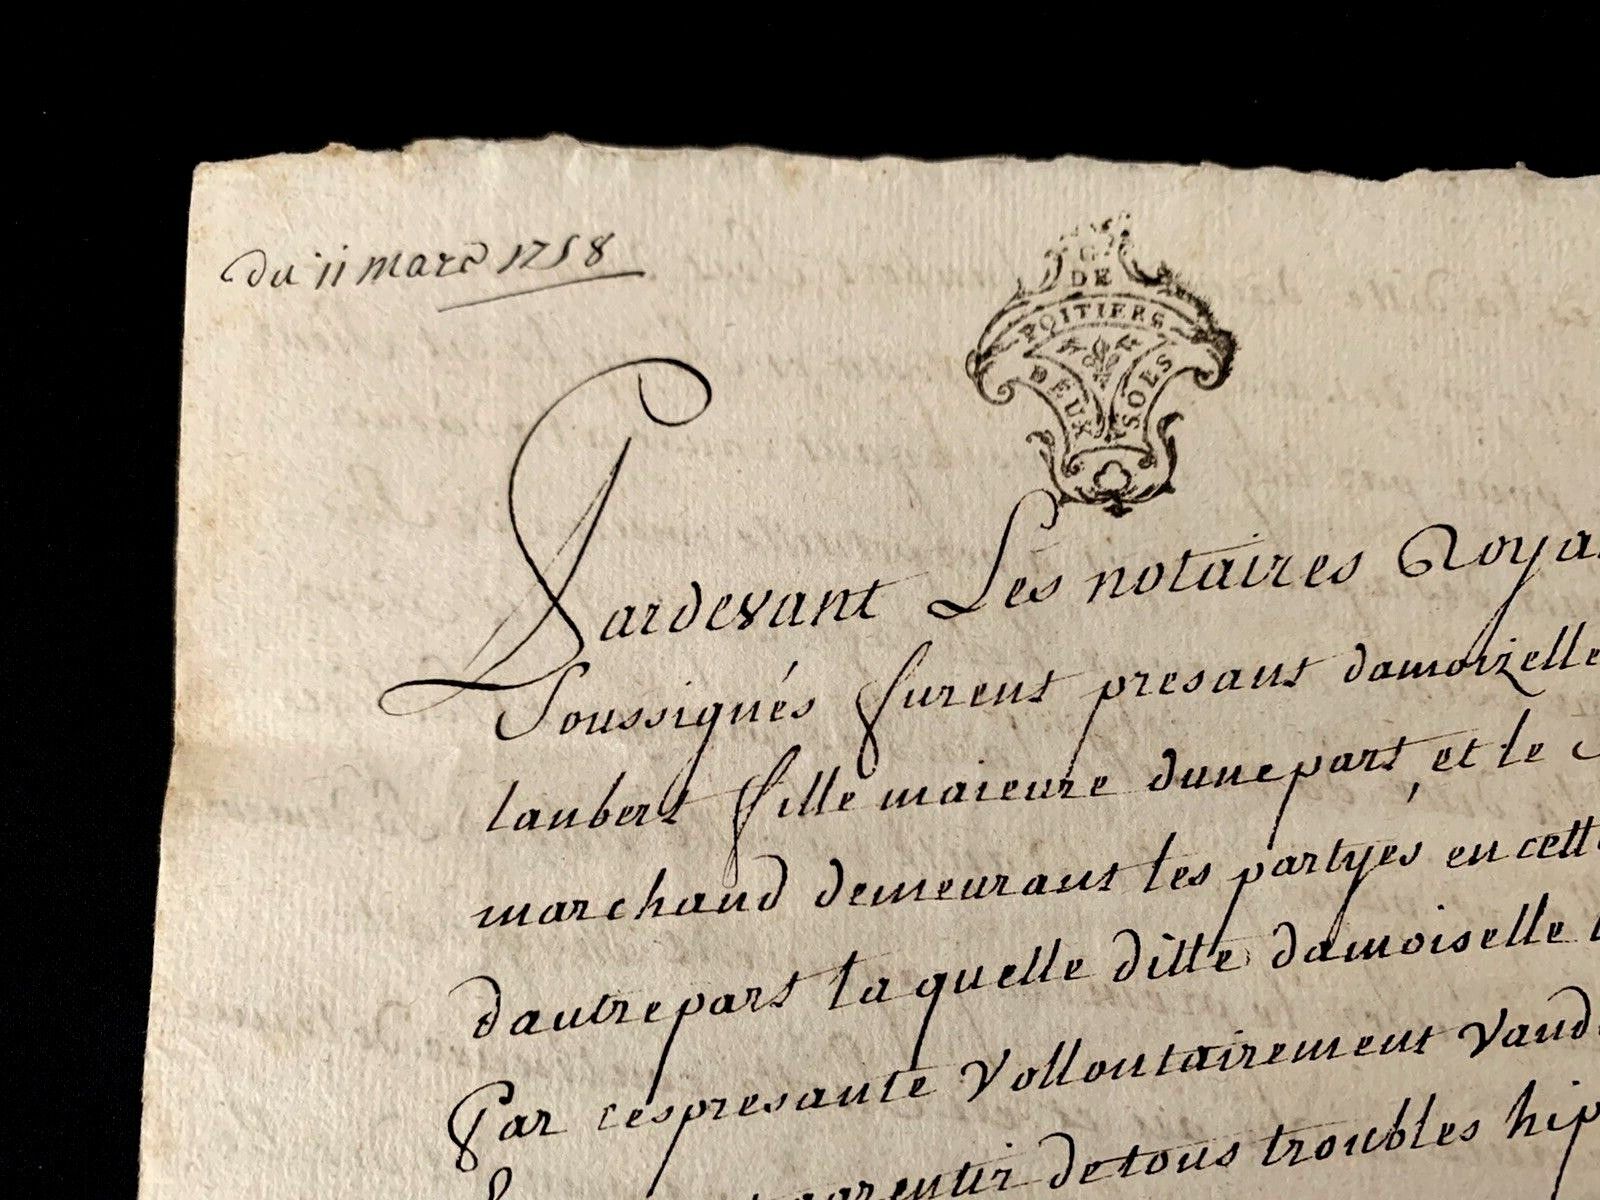 du 11 mars 1758
G.
DE
POITIERS
DEUX SOLS
Pardevant Les notaires Roya
Soussignés furent presant damoizelle
laubert fille maieure dunepart, et le
marchand demeurant les partyes en cett
dautrepart laquelle ditte damoiselle l
Par cespresante vollontairement vand
garentir detous troubles hip